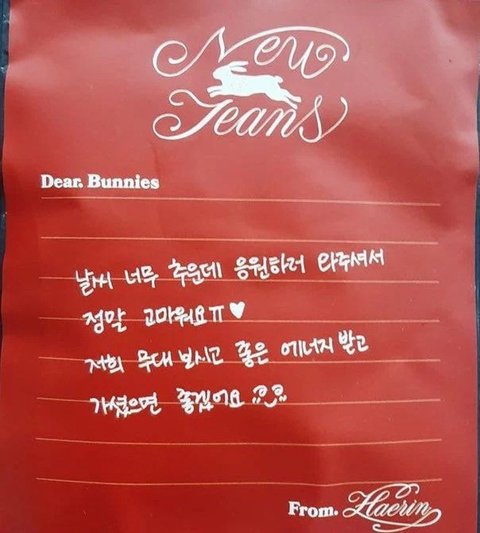 New
Jeans
Dear. Bunnies
날씨 너무 추운데 응원하러 와주셔서
정말 고마워요ㅠ♥
저희 무대 보시고 좋은 에너지 받고
가셨으면 좋겠어요
From. Haerin